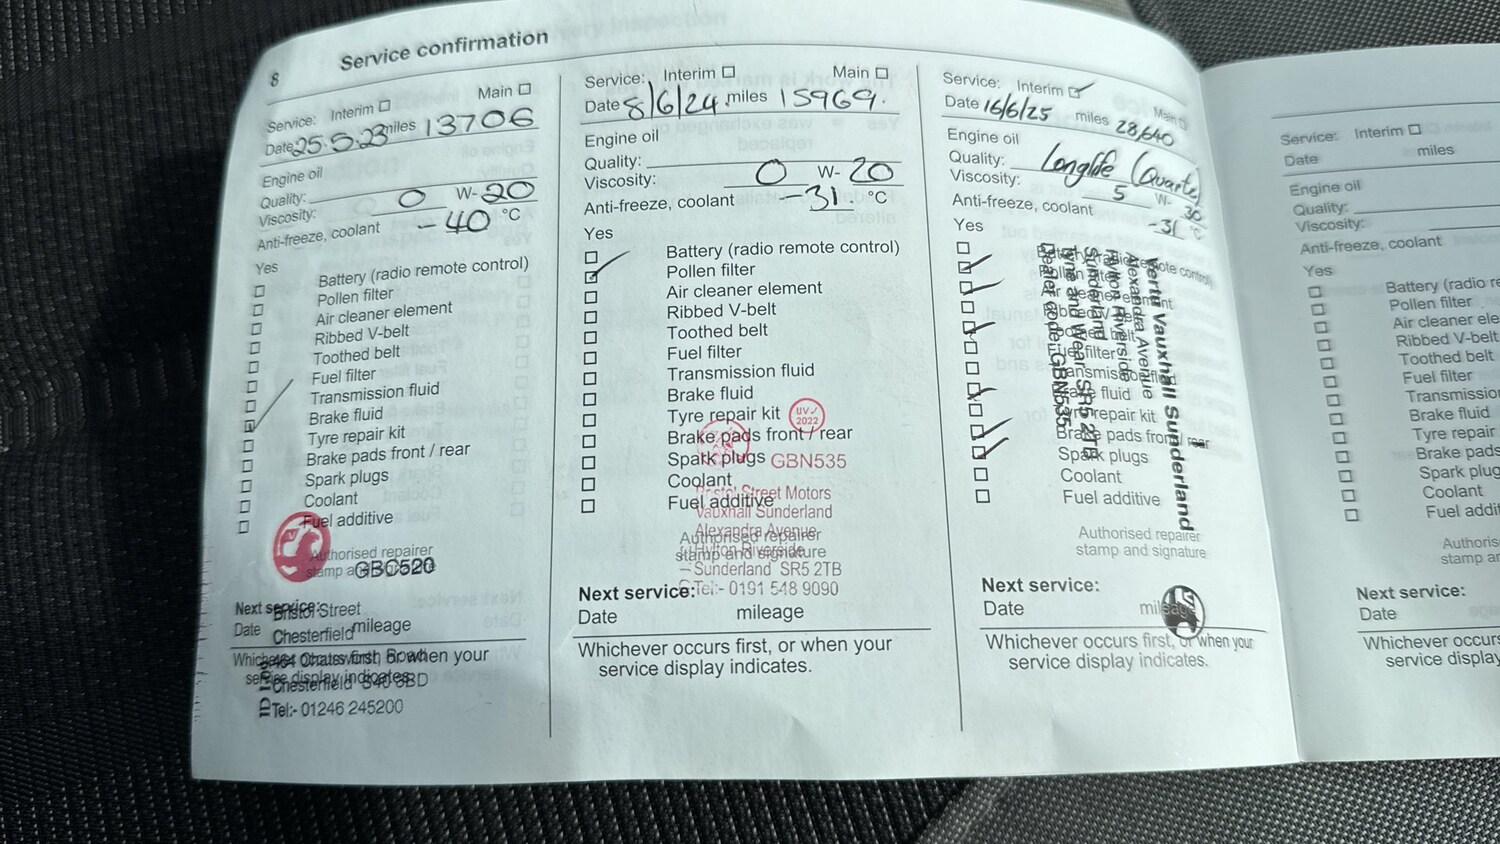 8
Service confirmation
Service: Interim Main
Date 25.5.23 miles 13706
Engine oil
Quality:
Viscosity: 0 W- 20
Anti-freeze, coolant -40 °C
Yes
Battery (radio remote control)
Pollen filter
Air cleaner element
Ribbed V-belt
Toothed belt
Fuel filter
Transmission fluid
Brake fluid
Tyre repair kit
Brake pads front / rear
Spark plugs
Coolant
Fuel additive
Authorised repairer
GBC520
Next service:
Bristol Street
Date mileage
Chesterfield
Whichever occurs first, or when your
service display indicates.
Chesterfield S40 3BD
Tel:- 01246 245200
Service: Interim Main
Date 8/6/24 miles 15969.
Engine oil
Quality:
Viscosity: 0 W- 20
Anti-freeze, coolant -31. °C
Yes
Battery (radio remote control)
Pollen filter
Air cleaner element
Ribbed V-belt
Toothed belt
Fuel filter
Transmission fluid
Brake fluid
Tyre repair kit
UV✓ 2022
Brake pads front / rear
Spark plugs
GBN535
Coolant
Fuel additive
Bristol Street Motors
Vauxhall Sunderland
Alexandra Avenue
Authorised repairer
Hylton Riverside
stamp and signature
Sunderland SR5 2TB
Tel:- 0191 548 9090
Next service:
Date mileage
Whichever occurs first, or when your
service display indicates.
Service: Interim Main
Date 16/6/25 miles 28,640
Engine oil
Quality: Longlife (Quartz)
Viscosity: 5 W- 30
Anti-freeze, coolant -31 °C
Yes
Battery (radio remote control)
Pollen filter
Air cleaner element
Ribbed V-belt
Toothed belt
Fuel filter
Transmission fluid
Brake fluid
Tyre repair kit
Brake pads front / rear
Spark plugs
Coolant
Fuel additive
Vertu Vauxhall Sunderland
Alexandra Avenue
Hylton Riverside
Sunderland
Tyne and Wear SR5 2TB
Dealer code: GBN535
Authorised repairer
stamp and signature
Next service:
Date mileage
Whichever occurs first, or when your
service display indicates.
Service: Interim
Date miles
Engine oil
Quality:
Viscosity:
Anti-freeze, coolant
Yes
Battery (radio re
Pollen filter
Air cleaner ele
Ribbed V-belt
Toothed belt
Fuel filter
Transmissio
Brake fluid
Tyre repair
Brake pads
Spark plug
Coolant
Fuel addit
Authoris
stamp a
Next service:
Date
Whichever occurs
service display